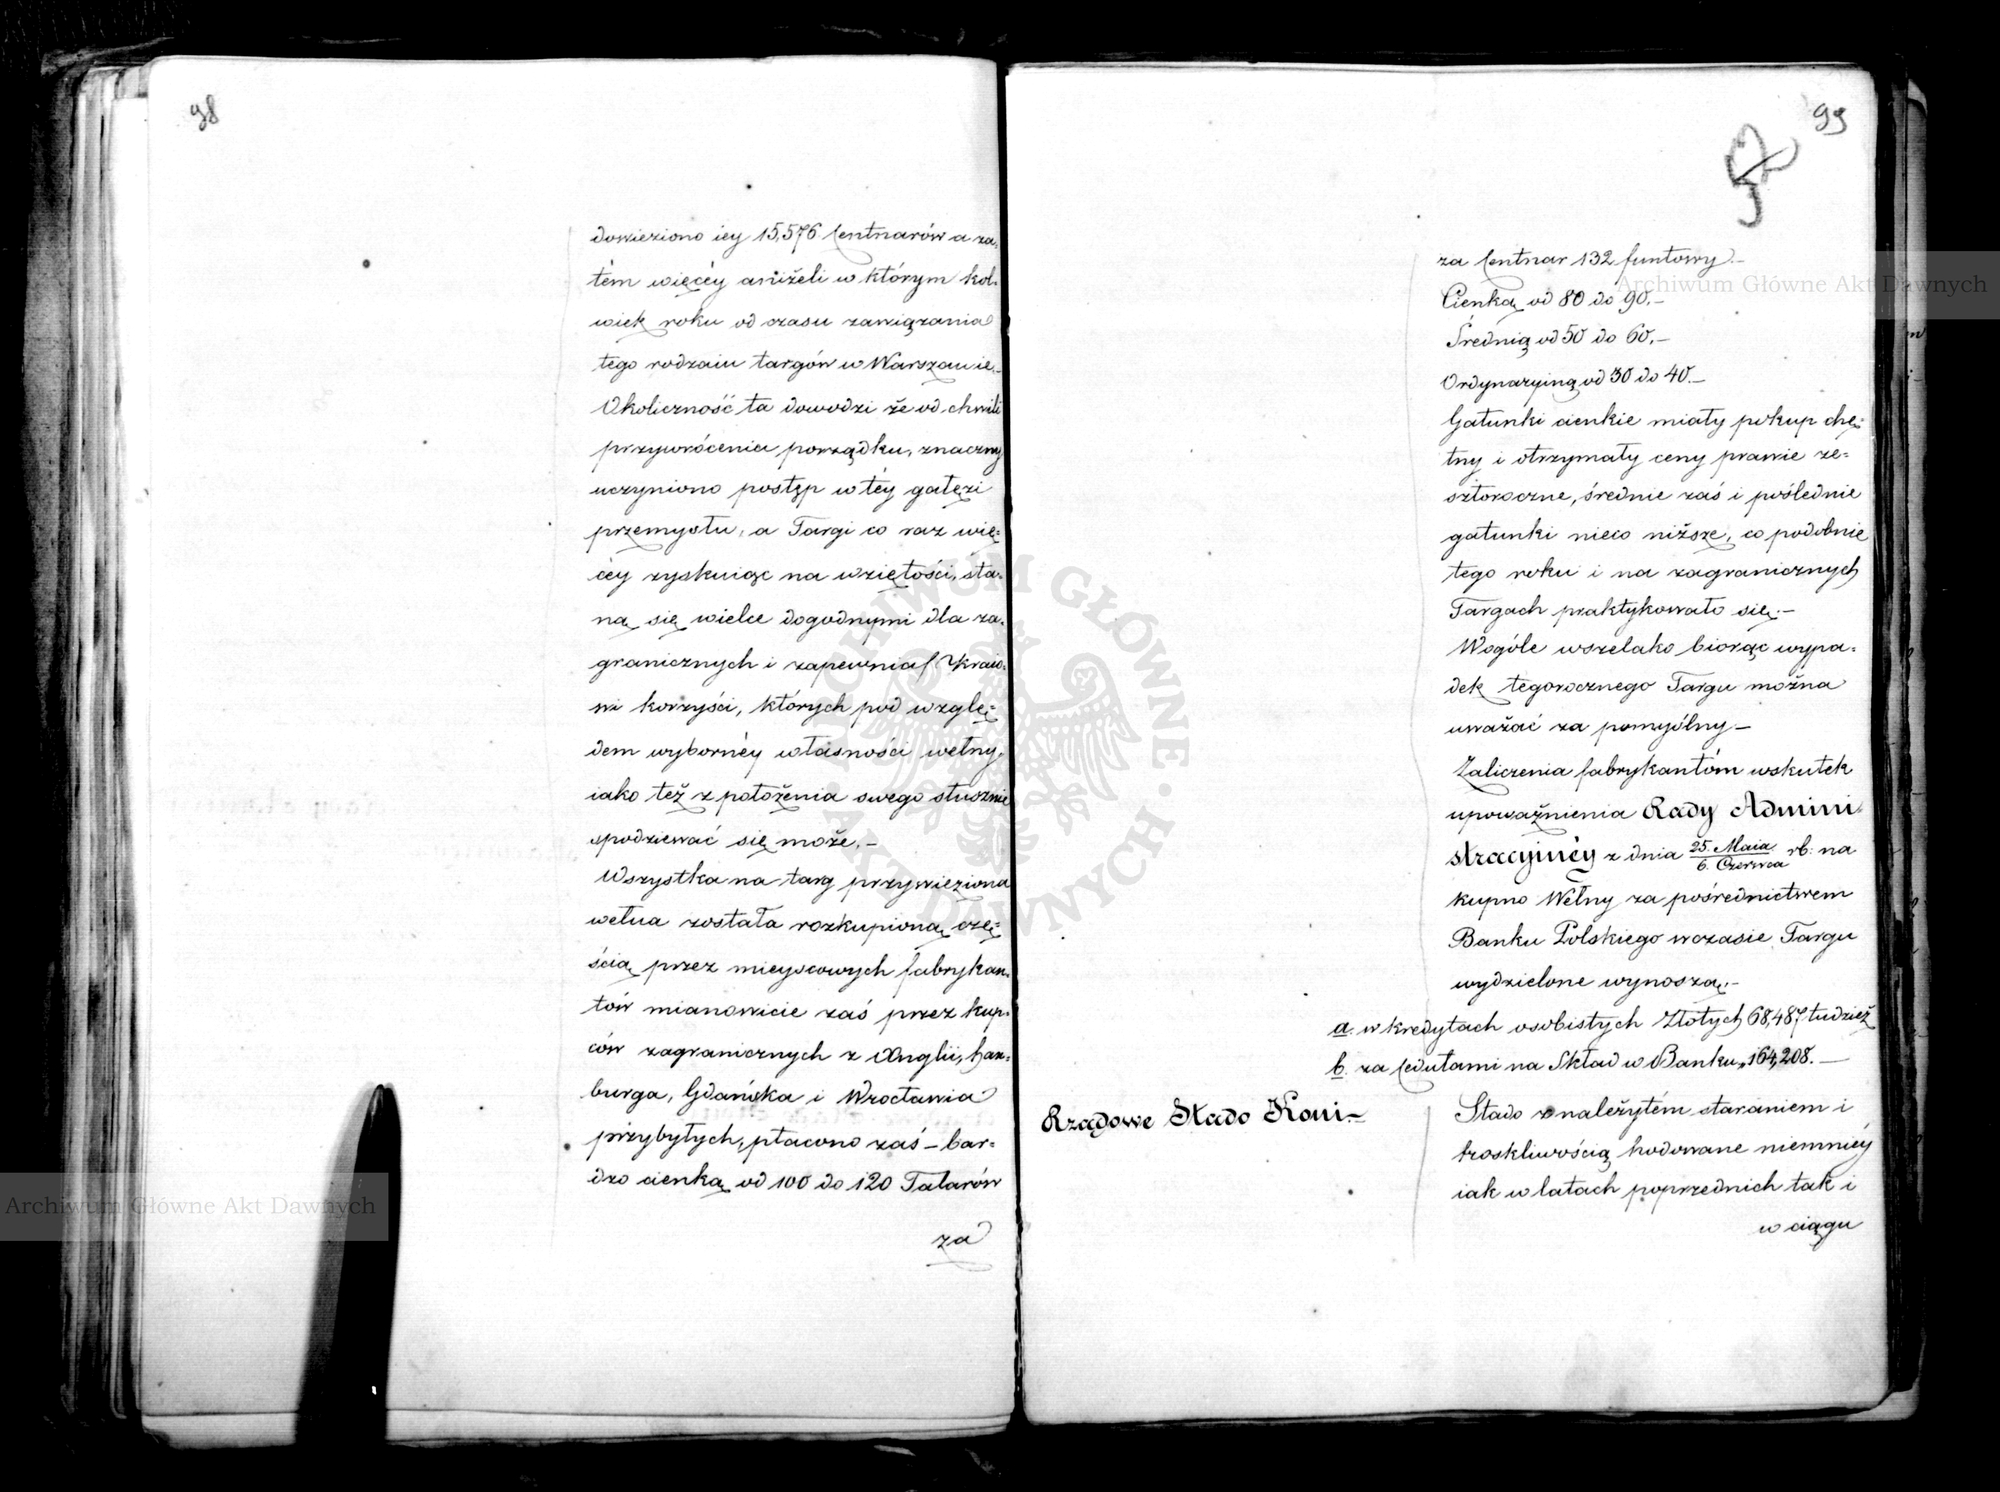 98
dowieziono iey 15,576 Centnarów a za,
tém więcéy aniżeli w którym kol-
wiek roku od czasu zawiązania
tego rodzaiu targów w Warszawie.-
Okoliczność ta dowodzi że od chwili
przywrócenia porządku, znaczny
uczyniono postęp w téy gałęzi
przemysłu, a Targi co raz wię=
céy zyskuiąc na wziętości, sta-
ną się wielce dogodnymi dla za-
granicznych i zapewnią Kraio-
wi korzyści, których pod wzglę=
dem wybornéy własności wełny,
iako też z położenia swego słusznie
spodziewać się może.-
Wszystka na targ przywieziona
wełna została rozkupioną czę=
ścią przez mieyscowych fabrykan-
tów mianowicie zaś przez kup-
ców zagranicznych z Anglii, Ham-
burga, Gdańska i Wrocławia
przybyłych, płacono zaś - bar-
dzo cienką od 100 do 120 Talarów
za
99
za Centnar 132 funtowy.-
Cienką od 80 do 90.-
Średnią od 50 do 60.-
Ordynaryiną od 30 do 40.-
Gatunki cienkie miały pokup chę=
tny i otrzymały ceny prawie ze=
szłoroczne, średnie zaś i poślednie
gatunki nieco niższe, co podobnie
tego roku i na zagranicznych
Targach praktykowało się.-
Wogóle wszelako biorąc wypa-
dek tegorocznego Targu można
uważać za pomyślny-
Zaliczenia fabrykantóm wskutek
upoważnienia Rady Admini-
stracyinéy z dnia 25. Maia / 6. Czerwca rb: na
kupno Wełny za pośrednictwem
Banku Polskiego wczasie Targu
wydzielone wynoszą.-
a. w kredytach osobistych Złotych 68,487 tudzież
b. za Cedułami na Skład w Banku „ 164,208.-
Rządowe Stado Koni.-
Stado z należytém staraniem i
troskliwością hodowane niemniéy
iak w latach poprzednich tak i
w ciągu
Archiwum Główne Akt Dawnych
Archiwum Główne Akt Dawnych
ARCHIWUM GŁÓWNE · AKT DAWNYCH ·